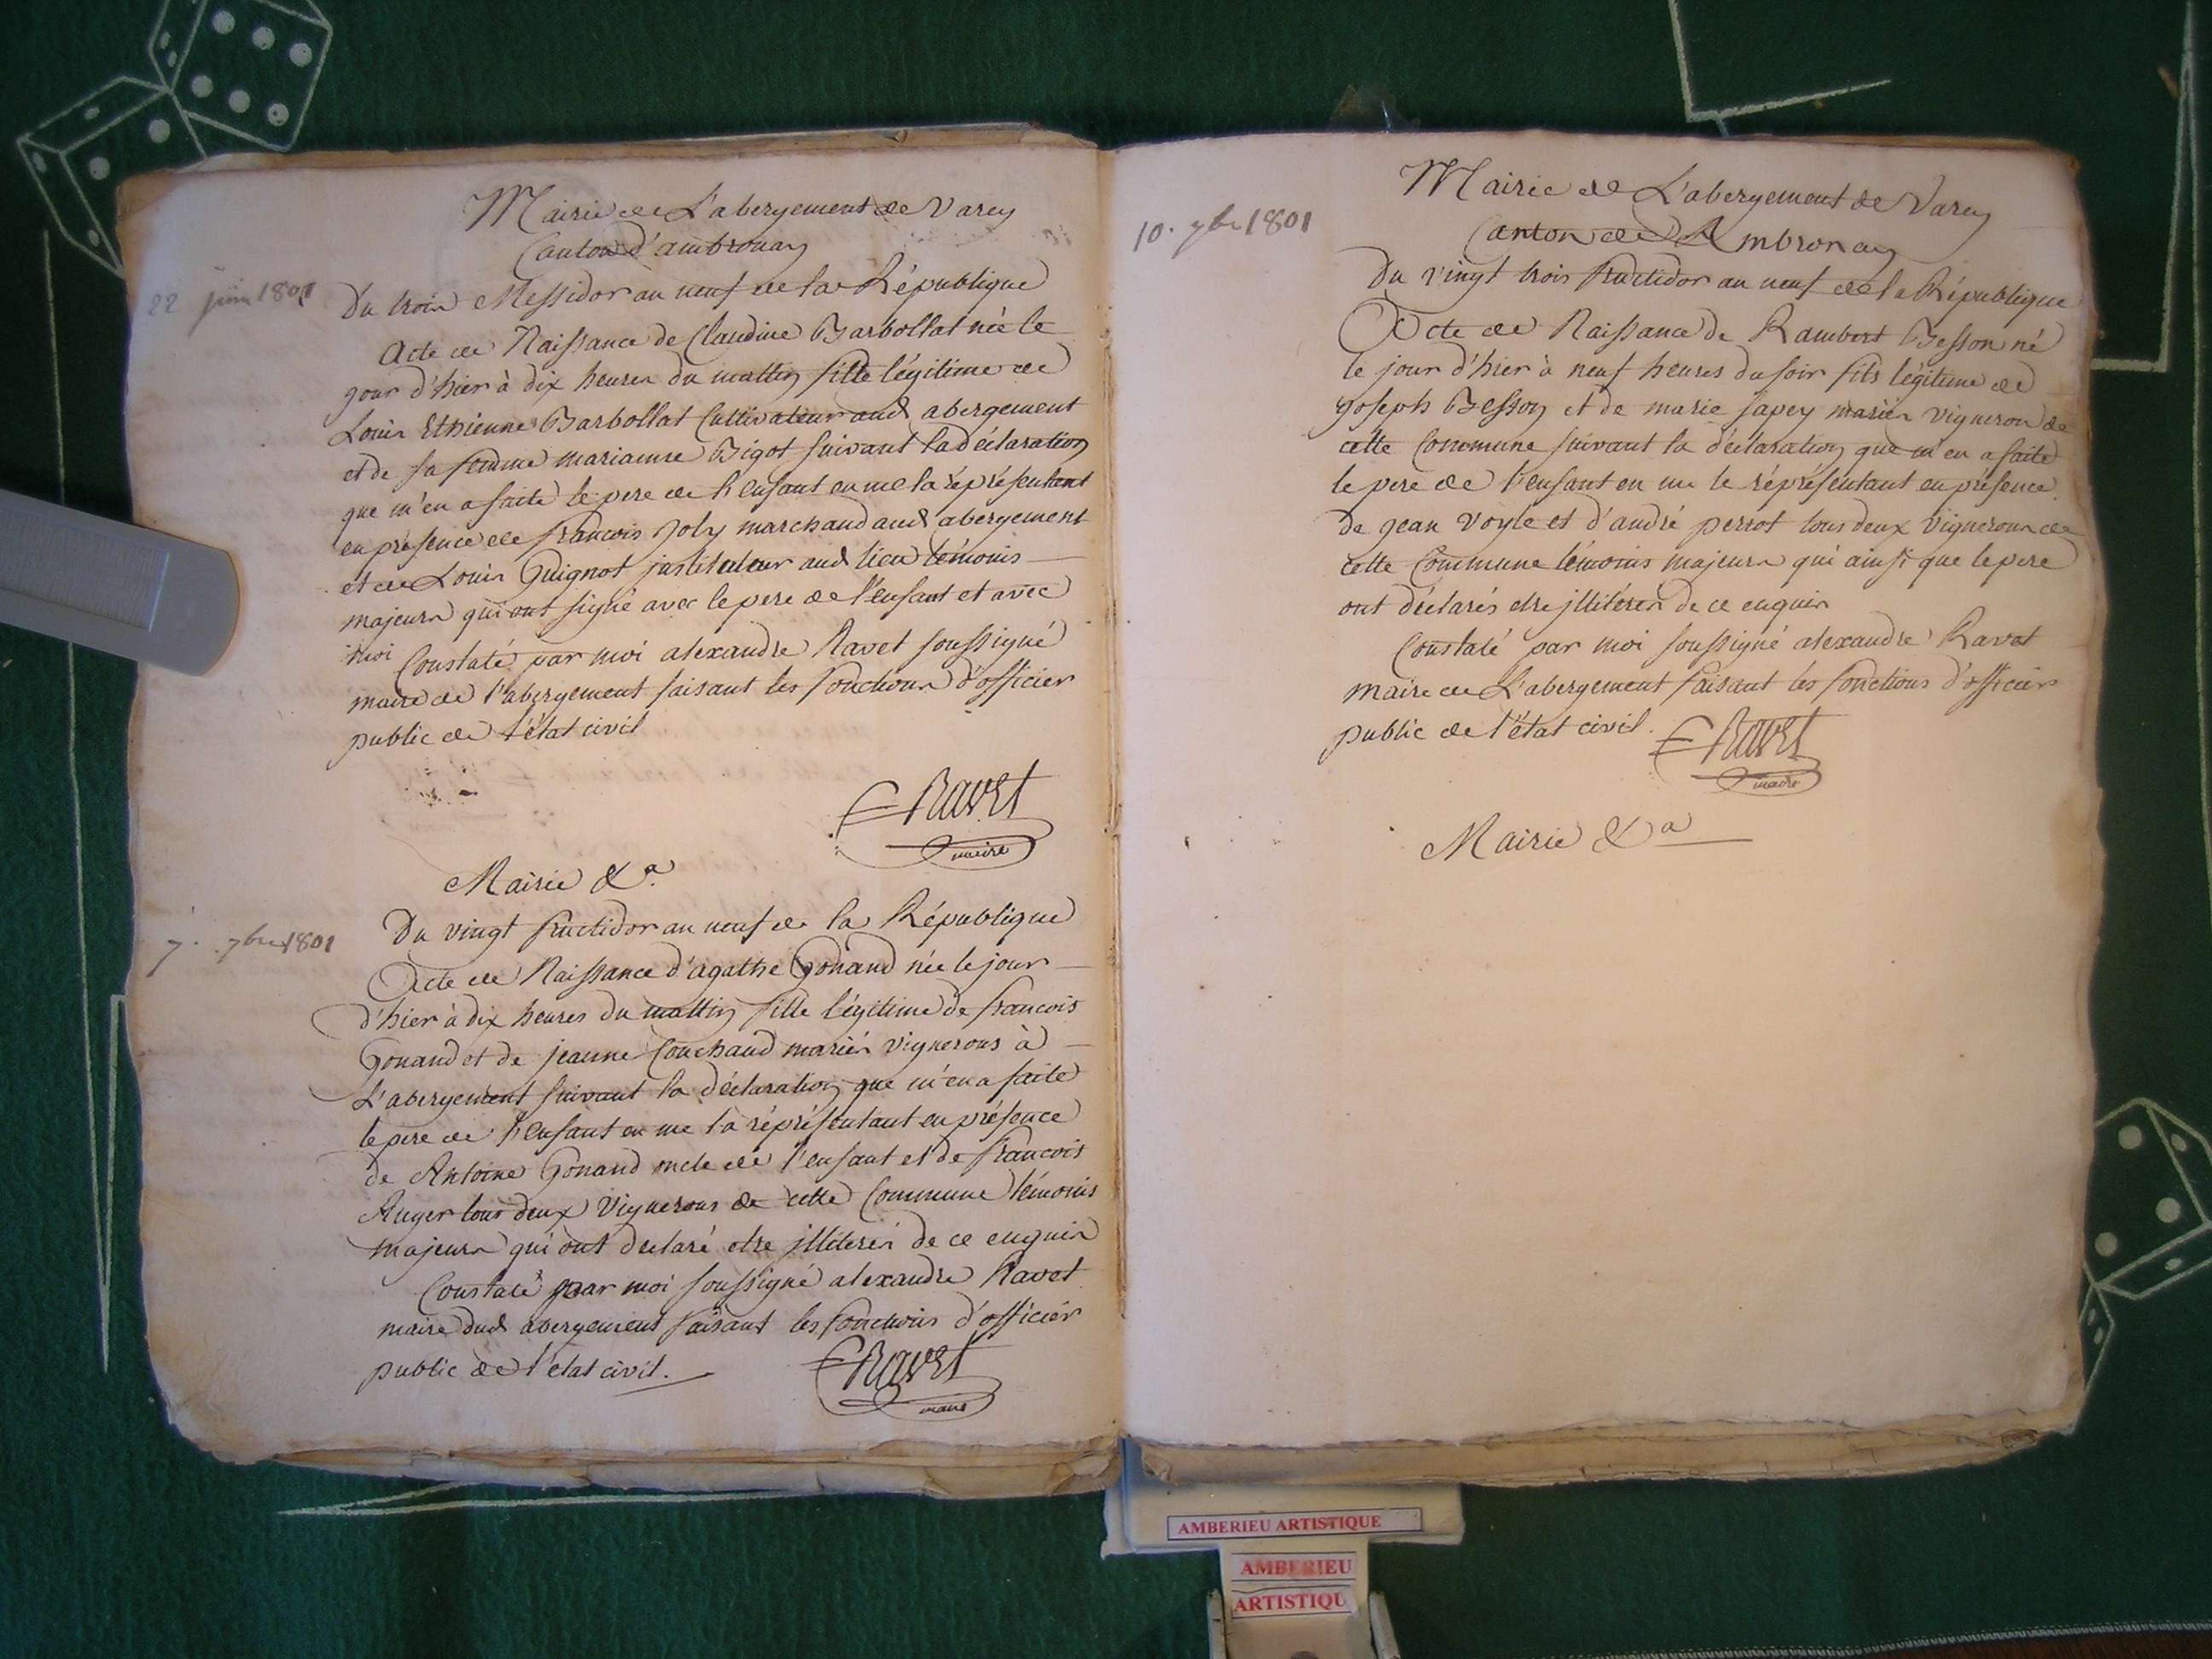 Mairie de L'abergement de Varey
Canton d'ambronay
22 juin 1801
Du trois Messidor an neuf de la République
Acte de Naissance de Claudine Barbollat née le
jour d'hier à dix heures du mattin fille légitime de
Louis Ethienne Barbollat Cultivateur aud abergement
et de sa femme marianne Bigot suivant la déclaration
que m'en a faite le pere de l'enfant en me la réprésentant
en présence de francois Joly marchand aud abergement
et de Louis Guignot justituteur aud lieu témoins
majeurs qui ont signé avec le pere de l'enfant et avec
moi Constaté par moi alexandre Ravet soussigné
maire de l'abergement faisant les fonctions d'officier
public de l'état civil
Ravet
maire
Mairie &a.
7. 7bre 1801
Du vingt fructidor an neuf de la République
Acte de Naissance d'agathe Gonand née le jour
d'hier à dix heures du mattin fille légitime de francois
Gonand et de jeanne Couchaud mariés vignerons à
L'abergement suivant la déclaration que m'en a faite
le pere de l'enfant en me la réprésentant en présence
de Antoine Gonand oncle de l'enfant et de francois
Auger tous deux vignerons de cette Commune témoins
majeurs qui ont declaré etre jlliterés de ce enquis
Constaté par moi soussigné alexandre Ravet
maire dud abergement faisant les fonctions d'officier
public de l'état civil.
Ravet
maire
10. 7bre 1801
Mairie de L'abergement de Varey
Canton de Ambronay
Du vingt trois fructidor an neuf de la République
Acte de Naissance de Rambert Besson né
le jour d'hier à neuf heures du soir fils légitime de
Joseph Besson et de marie sapey mariés vigneron de
cette Commune suivant la déclaration que m'en a faite
le pere de l'enfant en me le réprésentant en présence
de jean voyle et d'andré perrot tous deux vignerons de
cette Commune témoins majeurs qui ainsi que le pere
ont déclarés etre jlliterés de ce enquis
Constaté par moi soussigné alexandre Ravet
maire de L'abergement faisant les fonctions d'officier
public de l'état civil.
Ravet
maire
Mairie &a
AMBERIEU ARTISTIQUE
AMBERIEU
ARTISTIQU